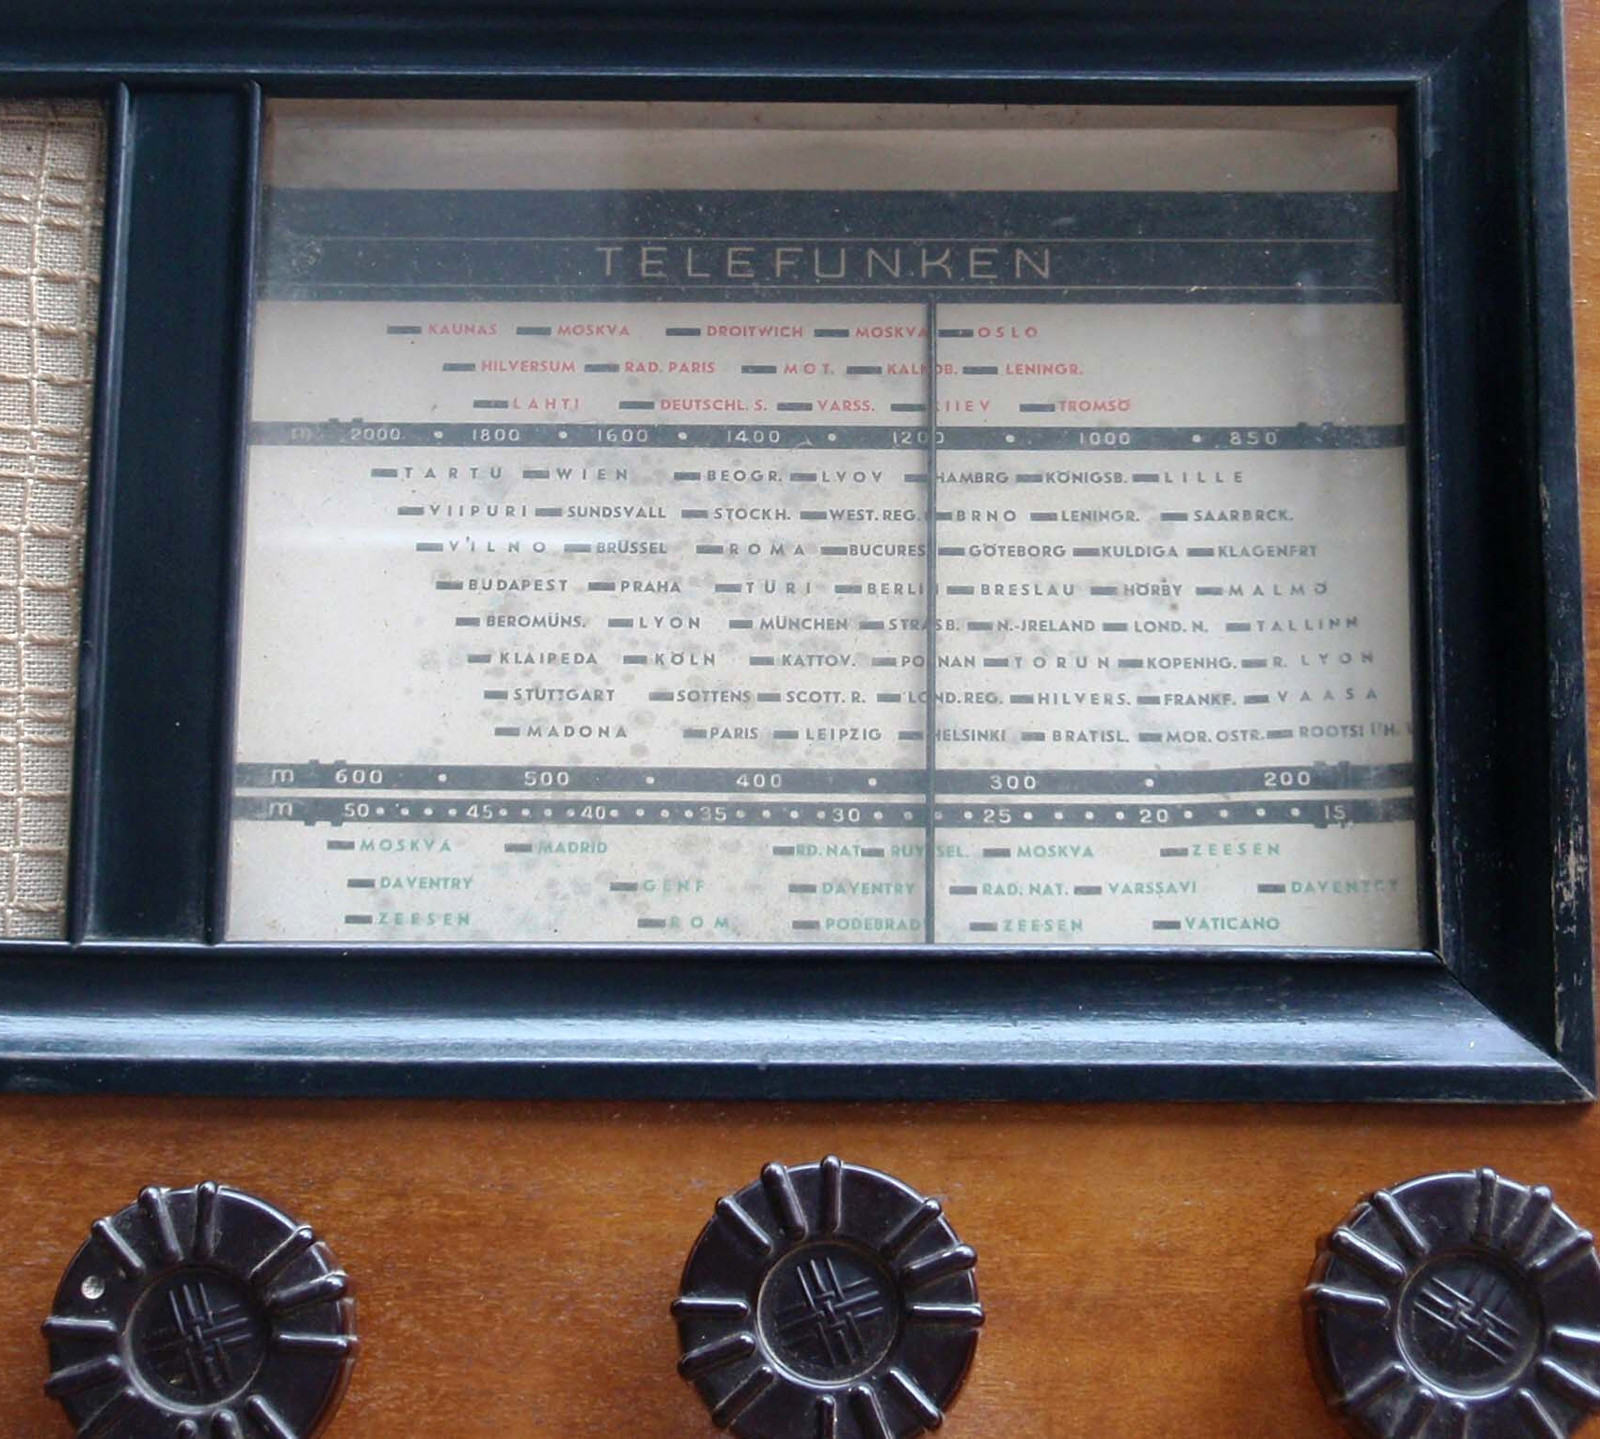 TELEFUNKEN
KAUNAS MOSKVA DROITWICH MOSKVA OSLO
HILVERSUM RAD. PARIS MOT. LENINGR.
LAHTI DEUTSCHL. S. VARSS. KIIEV TROMSÖ
m 2000 1800 1600 1400 1200 1000 850
TARTU WIEN BEOGR. LVOV HAMBRG KÖNIGSB. LILLE
VIIPURI SUNDSVALL STOCKH. WEST. REG. BRNO LENINGR. SAARBRCK.
VILNO BRÜSSEL ROMA BUCURES GÖTEBORG KULDIGA KLAGENFRT
BUDAPEST PRAHA TÜRI BERLIN BRESLAU HÖRBY MALMÖ
BEROMÜNS. LYON MÜNCHEN STRASB. N.-JRELAND LOND. N. TALLINN
KLAIPEDA KÖLN KATTOV. POZNAN TORUN KOPENHG. R. LYON
STUTTGART SOTTENS SCOTT. R. LOND. REG. HILVERS. FRANKF. VAASA
MADONA PARIS LEIPZIG HELSINKI BRATISL. MOR. OSTR. ROOTSI
m 600 500 400 300 200
m 50 45 40 35 30 25 20 15
MOSKVA MADRID RD. NAT. MOSKVA ZEESEN
DAVENTRY GENF DAVENTRY RAD. NAT. VARSSAVI DAVENTRY
ZEESEN ROM PODEBRAD ZEESEN VATICANO